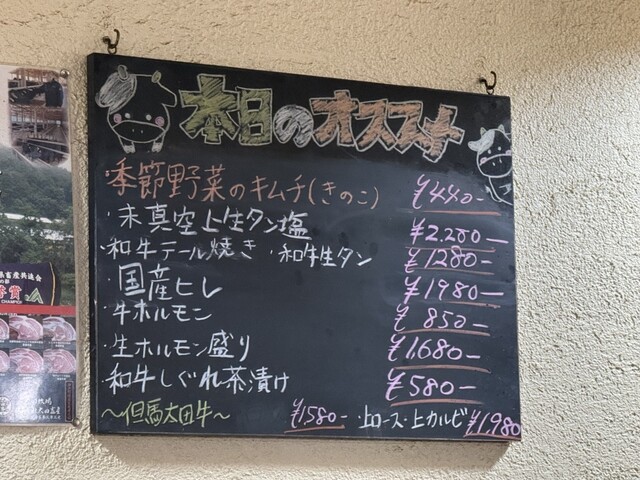 本日のオススメ
・季節野菜のキムチ(きのこ) ¥440-
・未真空上生タン塩 ¥2.200-
・和牛テール焼き ・和牛生タン ¥1280-
・国産ヒレ ¥1980-
・牛ホルモン ¥850-
・生ホルモン盛り ¥1,680-
・和牛しぐれ茶漬け ¥580-
～但馬太田牛～ ¥1,580- ・上ロース・上カルビ ¥1,980